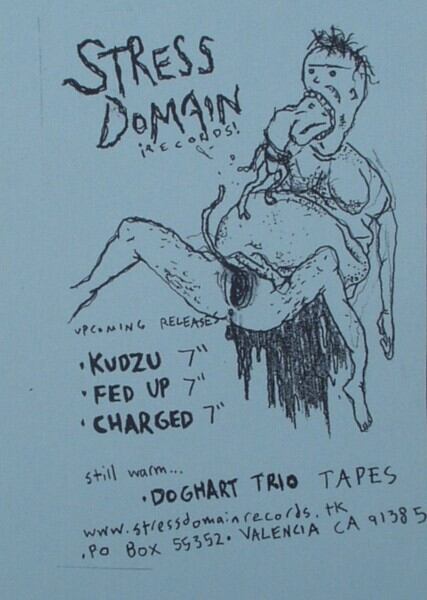 STRESS
DOMAIN
¡RECORDS!
UPCOMING RELEASES
·KUDZU 7"
·FED UP 7"
·CHARGED 7"
still warm...
·DOGHART TRIO TAPES
www.stressdomainrecords.tk
·PO BOX 55352· VALENCIA CA 91385